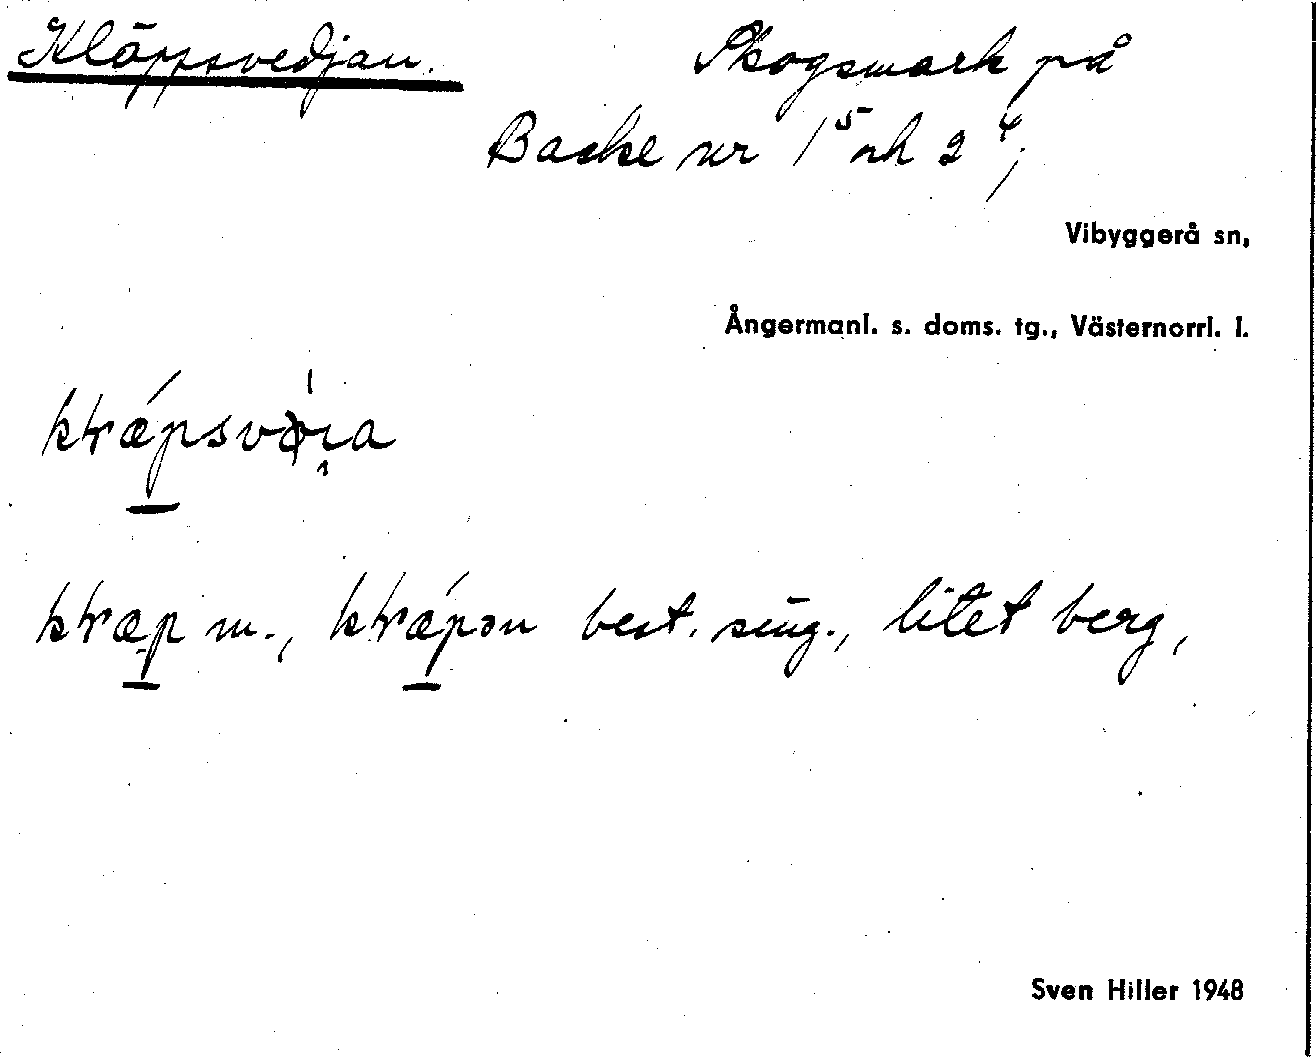 Kläppsvedjan. Skogsmark på
Backe nr 1⁵ och 2⁴;
Vibyggerå sn,
Ångermanl. s. doms. tg., Västernorrl. l.
best. sing., litet berg,
Sven Hiller 1948